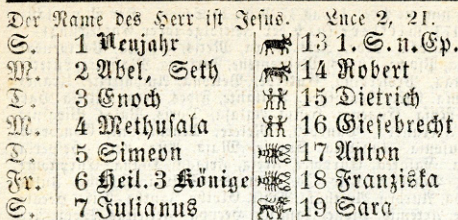 Der Name des Herr ist Jesus. Luce 2, 21.
S. 1 Neujahr 13 1. S. n. Ep.
M. 2 Abel, Seth 14 Robert
D. 3 Enoch 15 Dietrich
M. 4 Methusala 16 Giesebrecht
D. 5 Simeon 17 Anton
Fr. 6 Heil. 3 Könige 18 Franziska
S. 7 Julianus 19 Sara